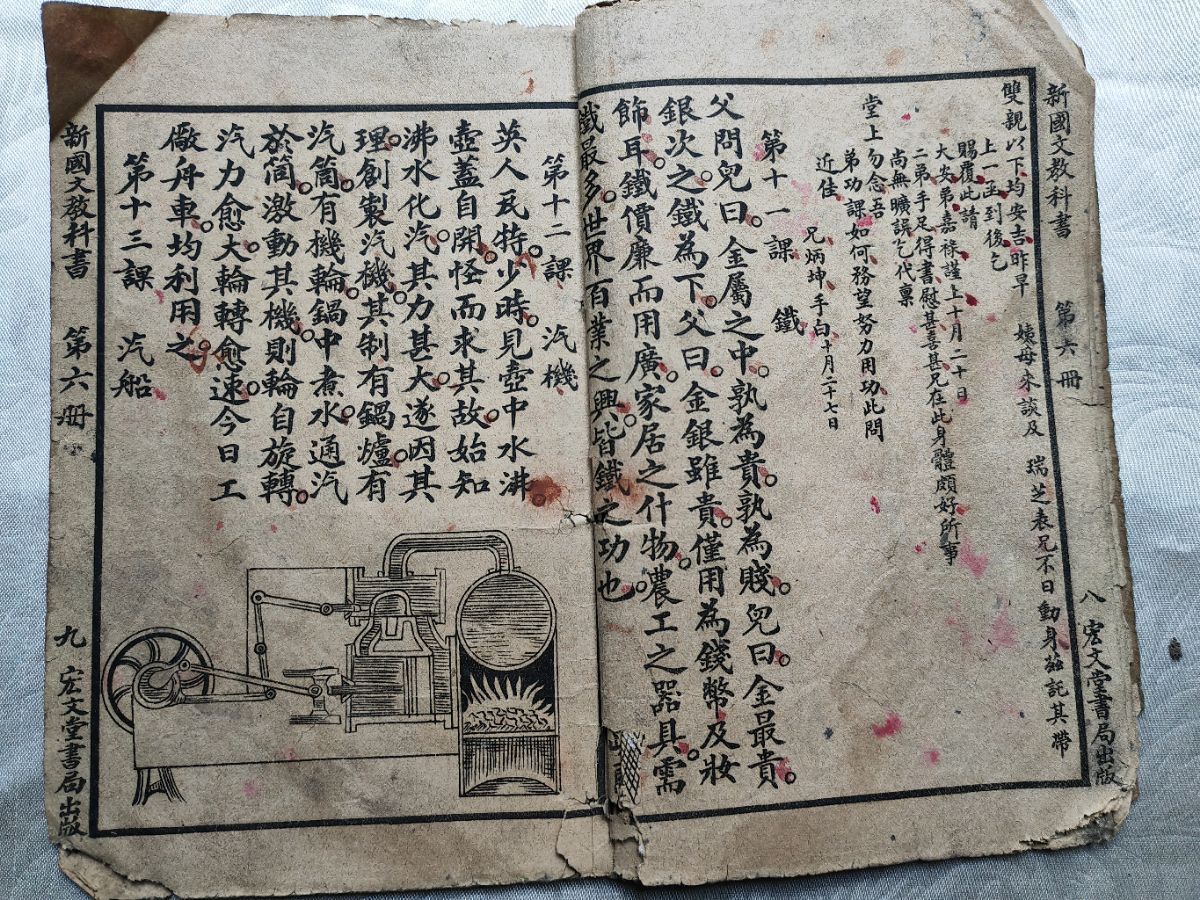 新國文教科書　第六冊　八　宏文堂書局出版
雙親以下均安吉昨早　姨母來談及　瑞芝表兄不日動身茲託其帶
上一函到後乞
賜覆此請
大安弟嘉祿謹上十月二十日
二弟手足得書慰甚喜甚兄在此身體頗好所事
尚無曠誤乞代稟
堂上勿念吾
弟功課如何務望努力用功此問
近佳　兄炳坤手白十月二十七日
第十一課　鐵
父問兒曰。金屬之中。孰為貴。孰為賤。兒曰。金最貴。
銀次之。鐵為下。父曰。金銀雖貴。僅用為錢幣及妝
飾耳。鐵價廉而用廣。家居之什物。農工之器具。需
鐵最多。世界百業之興。皆鐵之功也
第十二課　汽機
英人瓦特。少時。見壺中水沸。
壺蓋自開。怪而求其故。始知
沸水化汽。其力甚大。遂因其
理。創製汽機。其制有鍋爐。有
汽筒。有機輪。鍋中煮水。通汽
於筒。激動其機。則輪自旋轉。
汽力愈大。輪轉愈速。今日工
廠舟車。均利用之。
第十三課　汽船
新國文教科書　第六冊　九　宏文堂書局出版